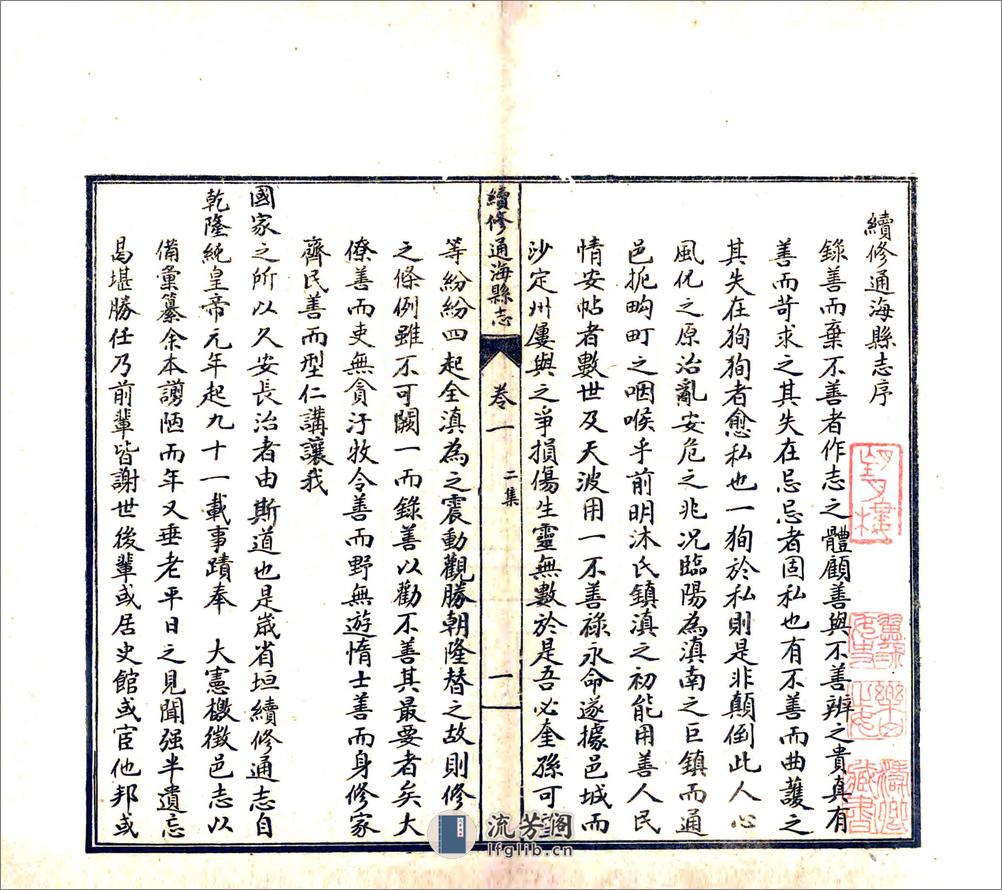 續修通海縣志序
錄善而棄不善者作志之體顧善與不善辨之貴真有
善而苛求之其失在忌忌者固私也有不善而曲護之
其失在狥狥者愈私也一狥於私則是非顛倒此人心
風化之原治亂安危之兆況臨陽為滇南之巨鎮而通
邑扼畇町之咽喉乎前明沐氏鎮滇之初能用善人民
情安帖者數世及天波用一不善祿永命遂據邑城而
沙定州屢與之爭損傷生靈無數於是吾必奎孫可
續修通海縣志
卷一
二集
一
等紛紛四起全滇為之震動觀勝朝隆替之故則修
之條例雖不可闕一而錄善以勸不善其最要者矣大
僚善而吏無貪汙牧令善而野無遊惰士善而身修家
齊民善而型仁講讓我
國家之所以久安長治者由斯道也是歲省垣續修通志自
乾隆純皇帝元年起九十一載事蹟奉 大憲檄徵邑志以
備彙纂余本謭陋而年又垂老平日之見聞强半遺忘
曷堪勝任乃前輩皆謝世後輩或居史館或宦他邦或
望月樓
藏書
流芳阁
lfglib.cn